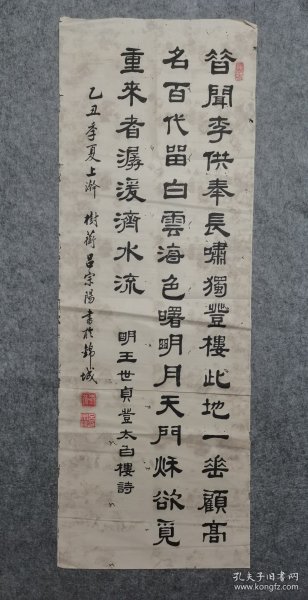 昔聞李供奉長嘯獨登樓此地一垂顧高
名百代留白雲海色曙明月天門秋欲覓
重來者潺湲濟水流 明王世貞登太白樓詩
乙丑季夏上澣 樹蘅呂宗陽書於錦城
孔夫子旧书网
www.kongfz.com